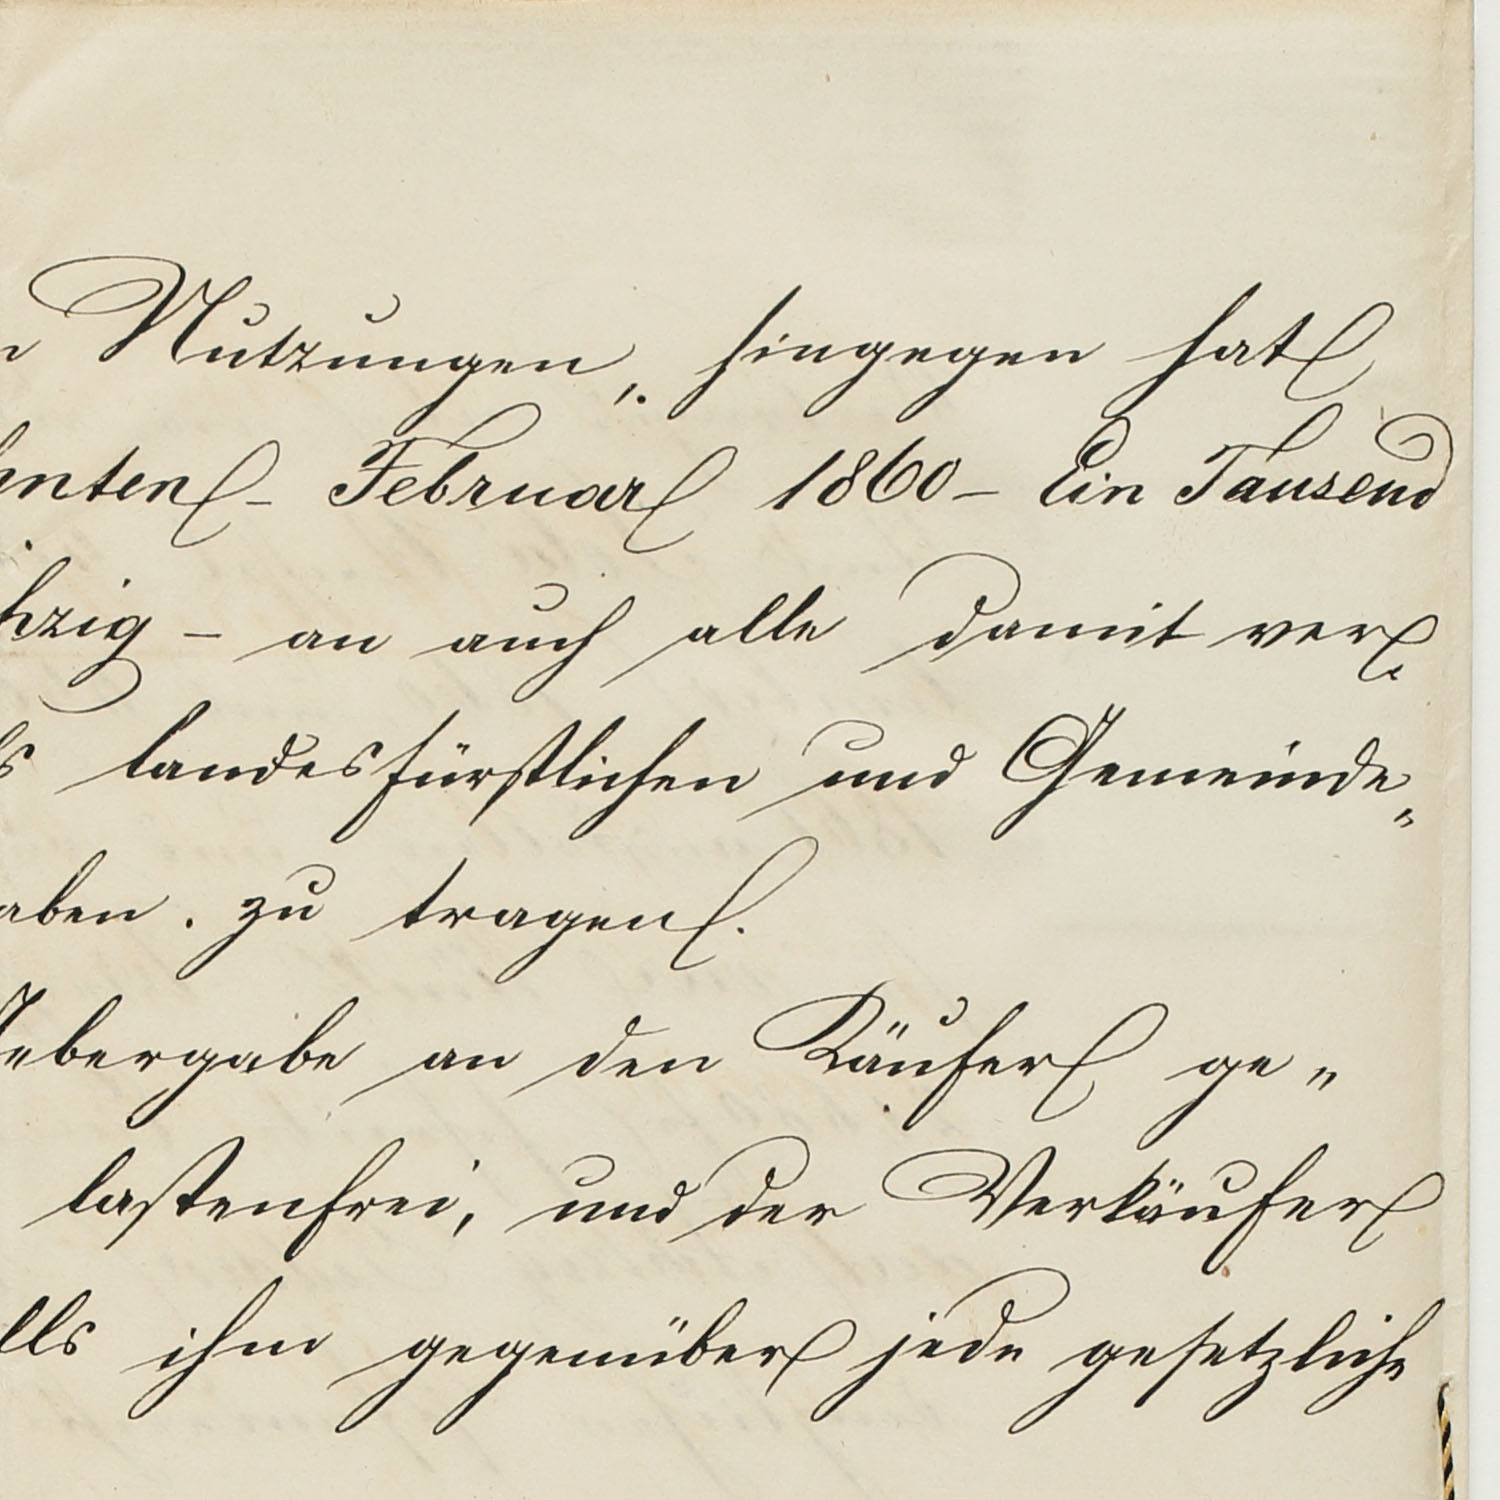 Nutzungen, hingegen hat
nten – Februar 1860 – Ein Tausend
hzig – an auch alle damit ver„
s landesfürstlichen und Gemeinde„
aben . zu tragen.
Uebergabe an den Käufer ge„
lastenfrei, und der Verkäufer
lls ihm gegenüber jede gesetzliche